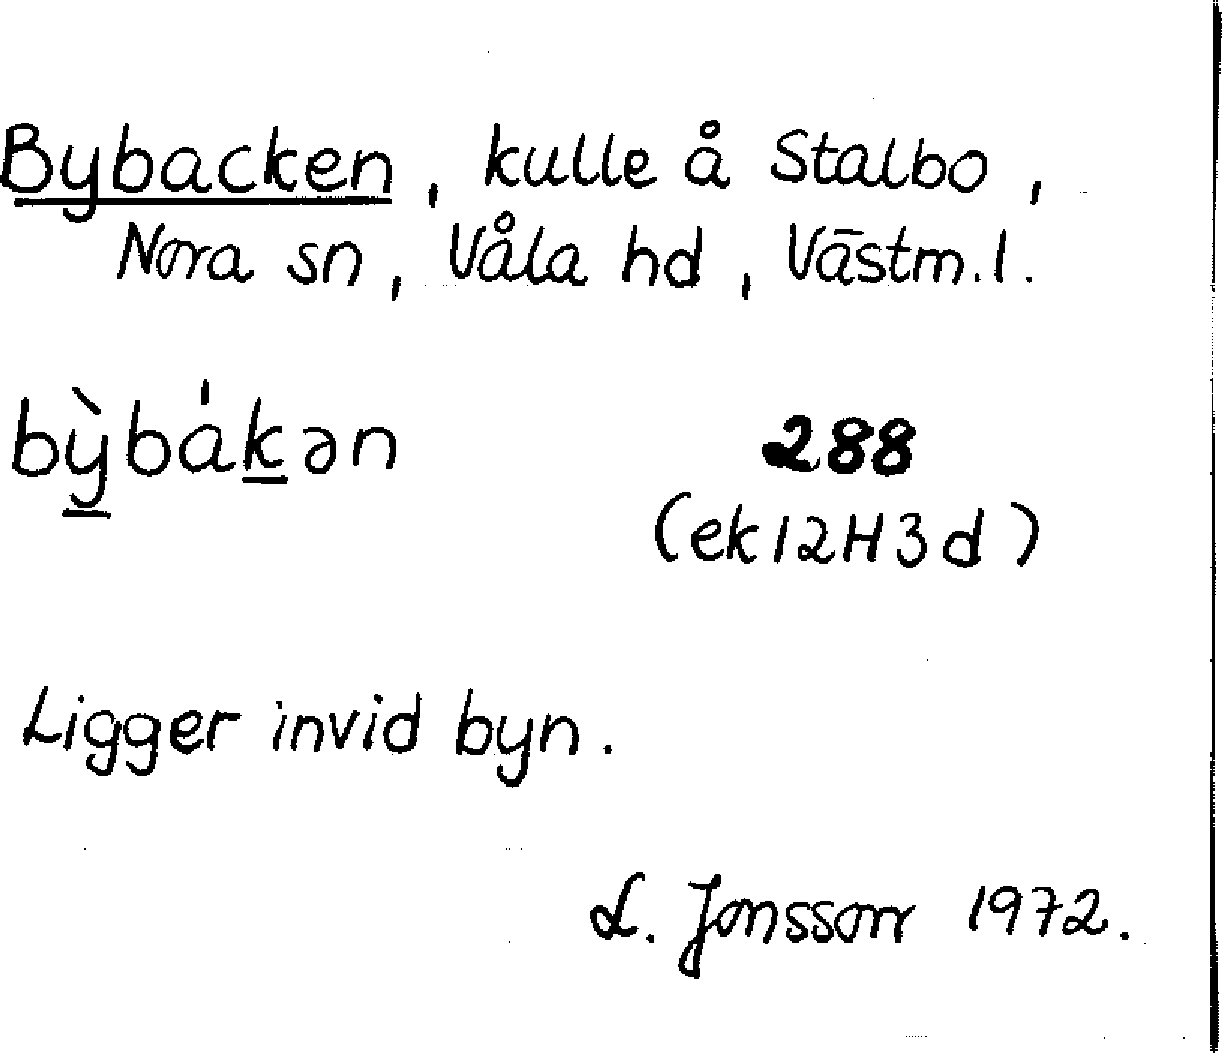 Bybacken, kulle å Stalbo,
Nora sn, Våla hd, Västm.l.
bỳ̲bák̲ən 288
(ek 12H3d)
Ligger invid byn.
L. Jonsson 1972.